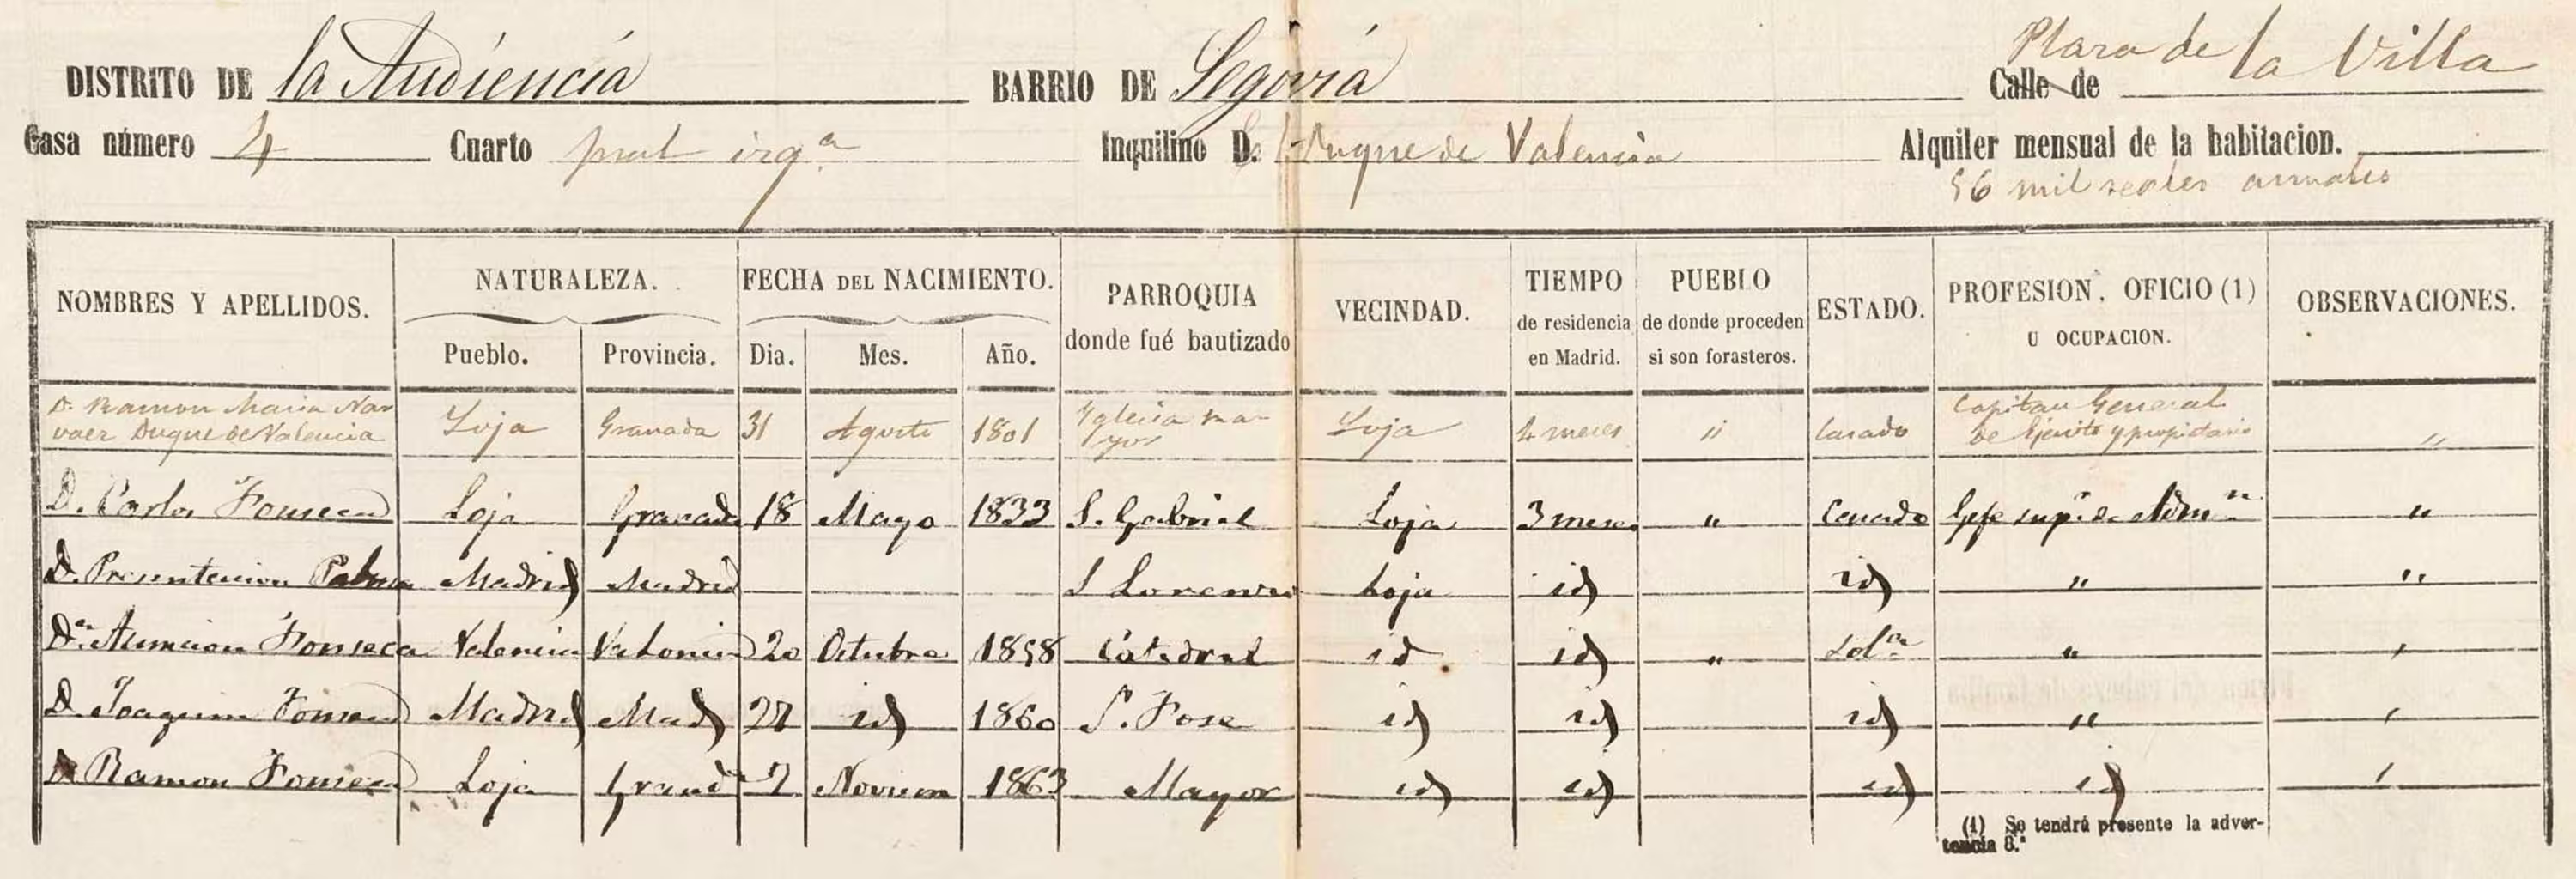 Plaza de la Villa
DISTRITO DE la Audiencia BARRIO DE Segovia Calle de
Casa número 4 Cuarto pral izqª Inquilino D. Duque de Valencia Alquiler mensual de la habitacion.
56 mil reales anuales
NOMBRES Y APELLIDOS. NATURALEZA. FECHA DEL NACIMIENTO. PARROQUIA donde fué bautizado VECINDAD. TIEMPO de residencia en Madrid. PUEBLO de donde proceden si son forasteros. ESTADO. PROFESION, OFICIO (1) U OCUPACION. OBSERVACIONES.
Pueblo. Provincia. Dia. Mes. Año.
D. Ramon Maria Nar
vaez Duque de Valencia Loja Granada 31 Agosto 1801 Yglesia ma-
yor Loja 4 meses " Casado Capitan General
de Ejercito y propietario "
D. Carlos Fonseca Loja Granada 18 Mayo 1833 S. Gabriel Loja 3 meses " Casado Gefe supr. de Admn "
D. Presentacion Palma Madrid Madrid S Lorenzo Loja id id " "
Dª Asuncion Fonseca Valencia Valencia 20 Octubre 1858 Catedral id id " solª " "
D. Joaquin Fonseca Madrid Mad 27 id 1860 S. Jose id id id " "
D Ramon Fonseca Loja Granad 7 Noviem 1863 Mayor id id id id "
(1) Se tendrá presente la adver-
tencia 8.ª